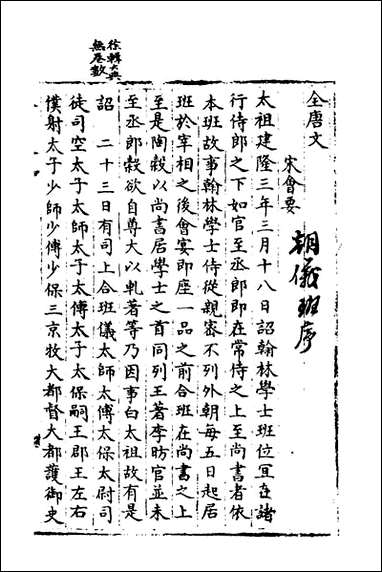 徐輯大典
無卷數
全唐文
宋會要
朝儀班序
太祖建隆三年三月十八日詔翰林學士班位宜在諸
行侍郎之下如官至丞郎即在常侍之上至尚書者依
本班故事翰林學士侍從親密不列外朝每五日起居
班於宰相之後會宴即座一品之前合班在尚書之上
至是陶穀以尚書居學士之首同列王著李昉官並未
至丞郎穀欲自尊大以軋著等乃因事白太祖故有是
詔　二十三日有司上合班儀太師太傅太保太尉司
徒司空太子太師太子太傅太子太保嗣王郡王左右
僕射太子少師少傅少保三京牧大都督大都護御史